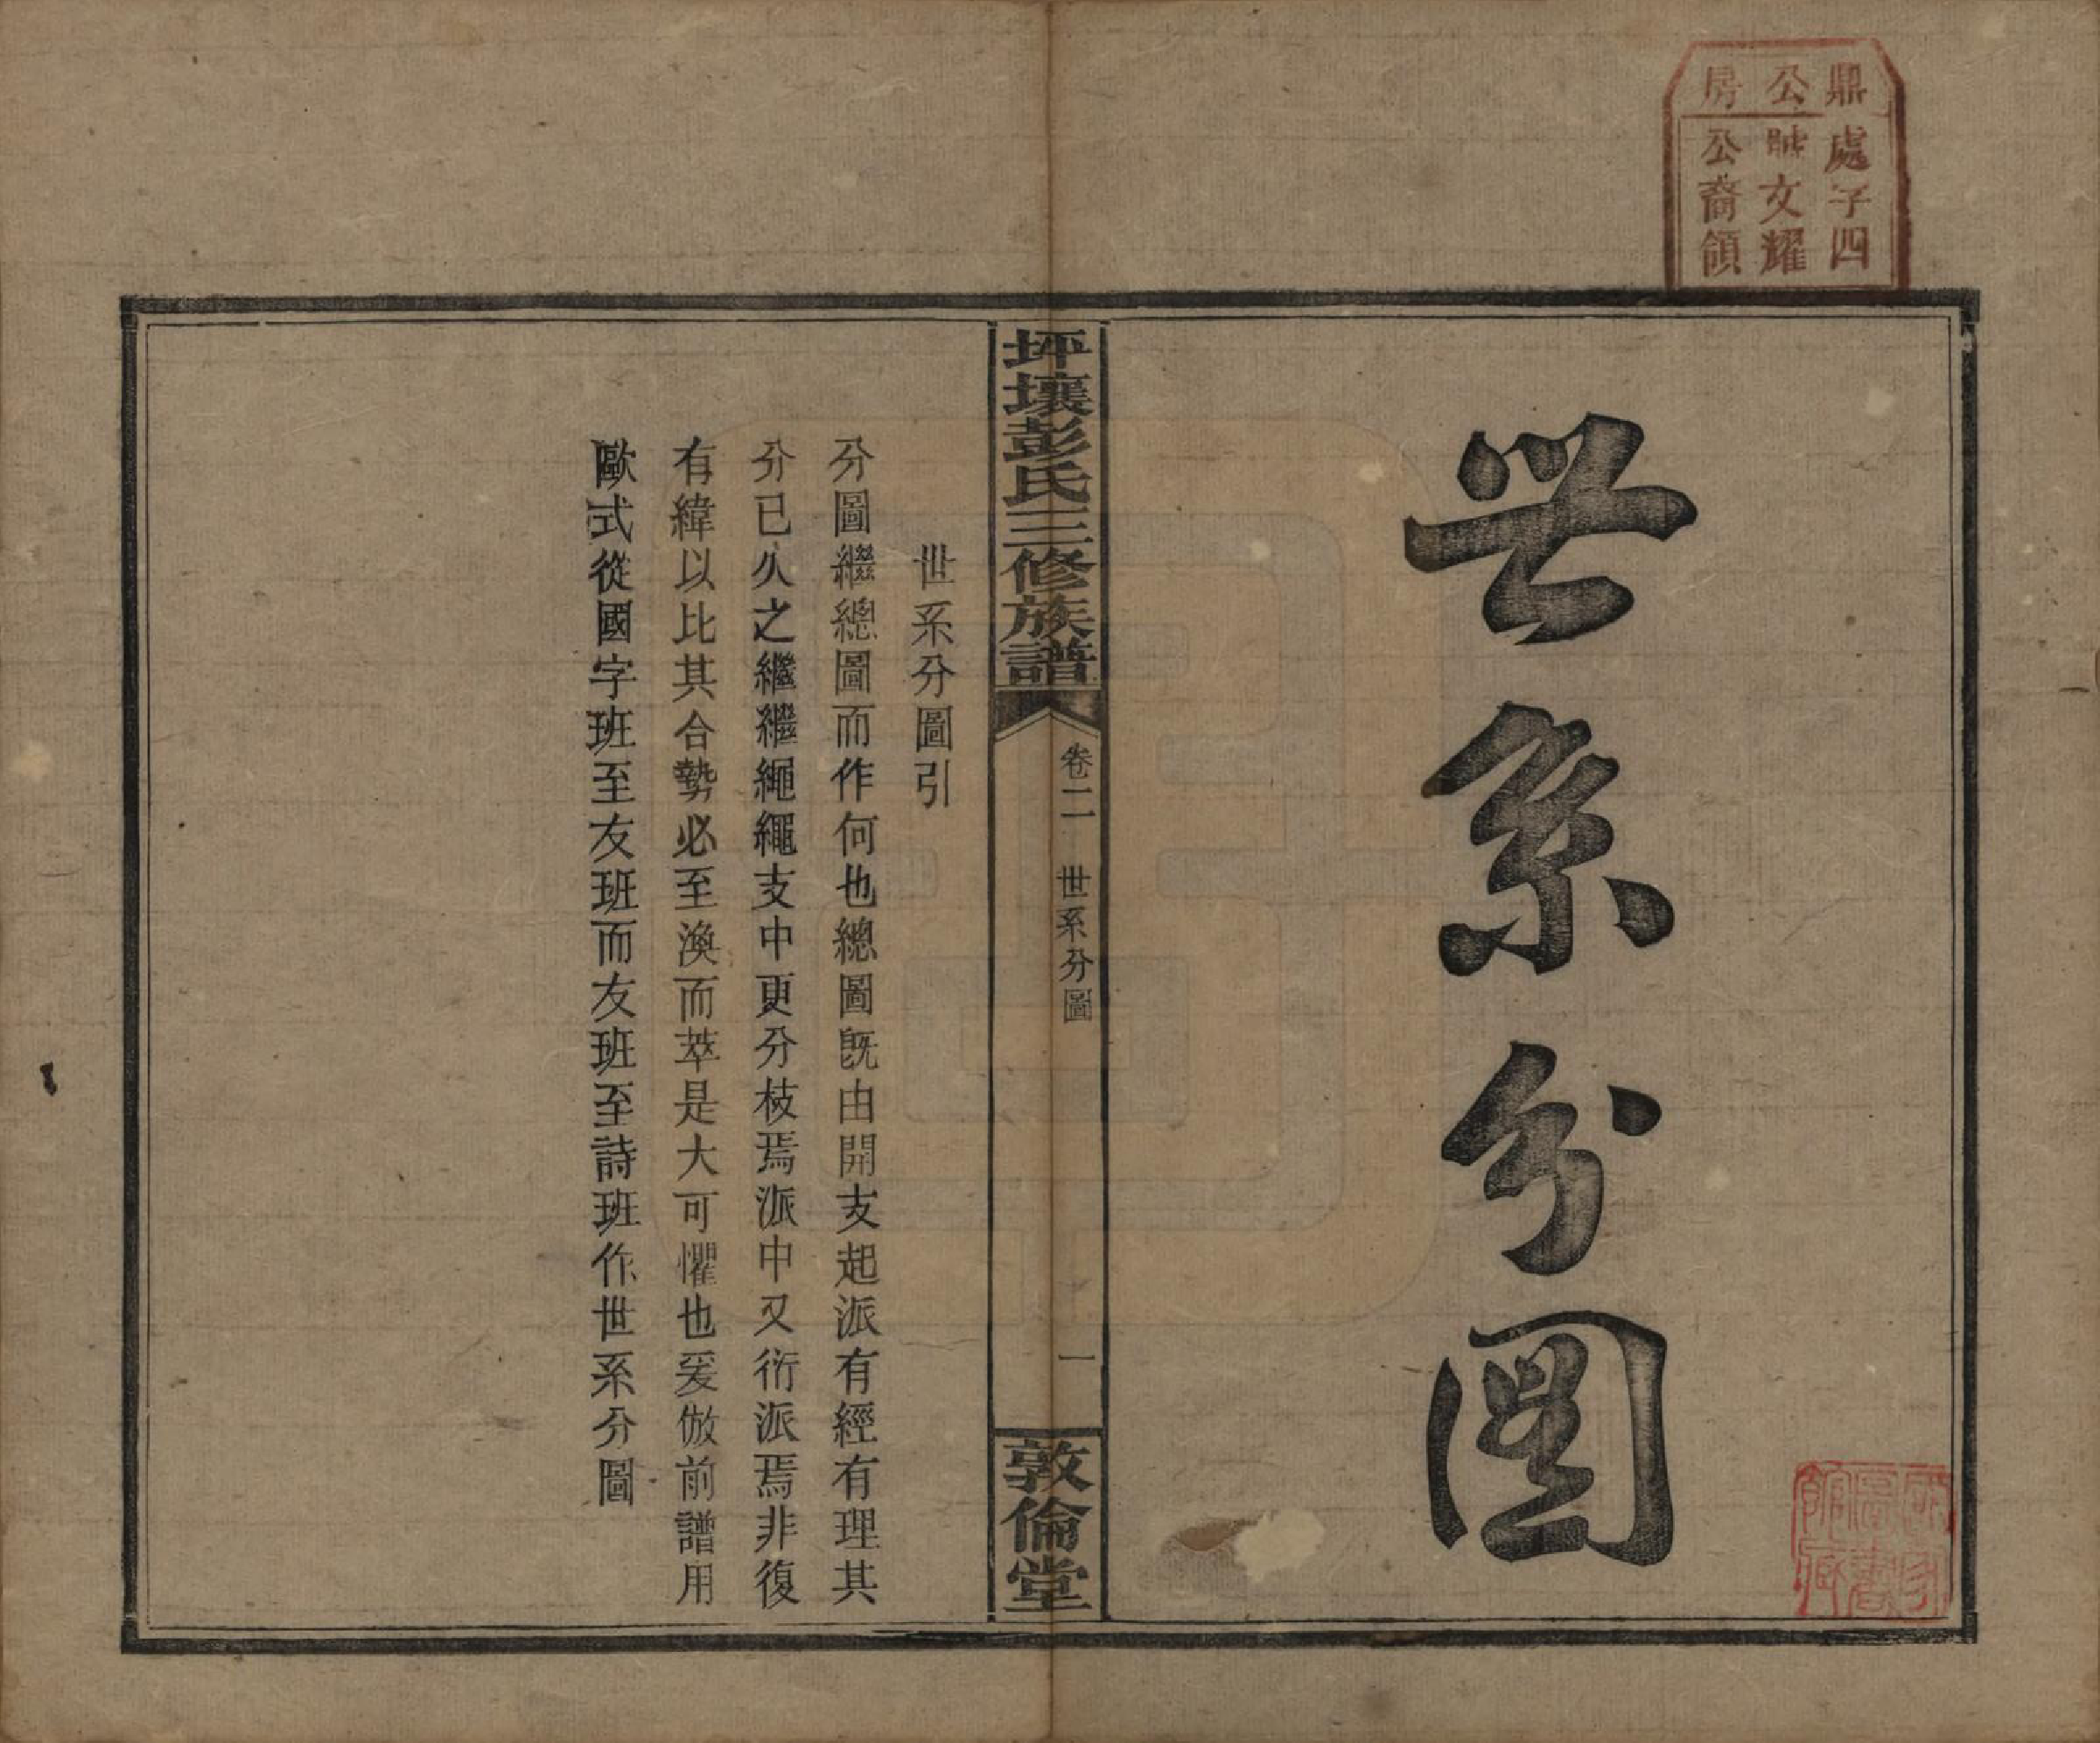 鼎公房
處字四
文耀
公裔領
世系分圖
國家圖書館藏
坪壤彭氏三修族譜
卷二 世系分圖 一
敦倫堂
世系分圖引
分圖繼總圖而作何也總圖旣由開支起派有經有理其
分已久之繼繼繩繩支中更分枝焉派中又衍派焉非復
有緯以比其合勢必至渙而萃是大可懼也爰倣前譜用
歐式從國字班至友班而友班至詩班作世系分圖